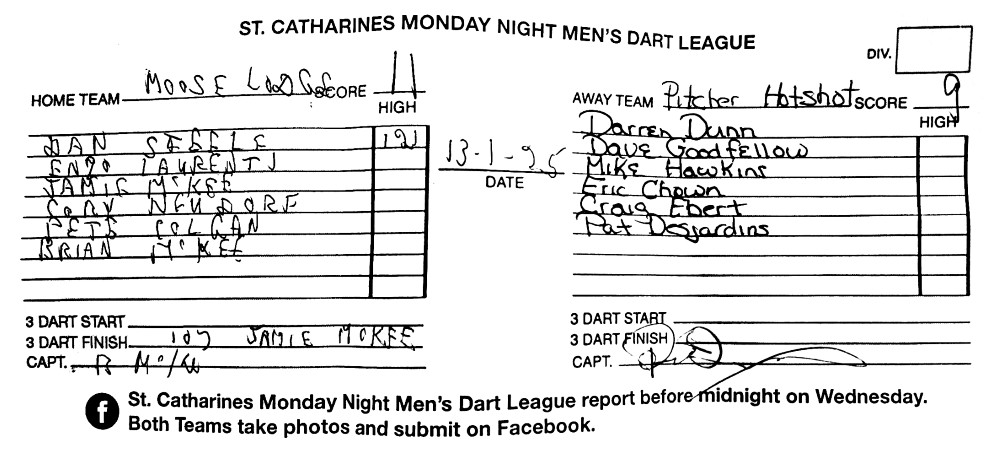 ST. CATHARINES MONDAY NIGHT MEN'S DART LEAGUE
DIV.
HOME TEAM MOOSE LODGE SCORE 11
HIGH
DAN STEELE 121
ENZO LAURENTI
JAMIE McKEE
CORY NEUDORF
PETE COLGAN
BRIAN McKEE
3 DART START
3 DART FINISH 107 JAMIE McKEE
CAPT. B
13-1-25
DATE
AWAY TEAM Pitcher Hotshot SCORE 9
HIGH
Darren Dunn
Dave Goodfellow
Mike Hawkins
Eric Chown
Craig Ebert
Pat Desjardins
3 DART START
3 DART FINISH
CAPT.
f St. Catharines Monday Night Men's Dart League report before midnight on Wednesday.
Both Teams take photos and submit on Facebook.